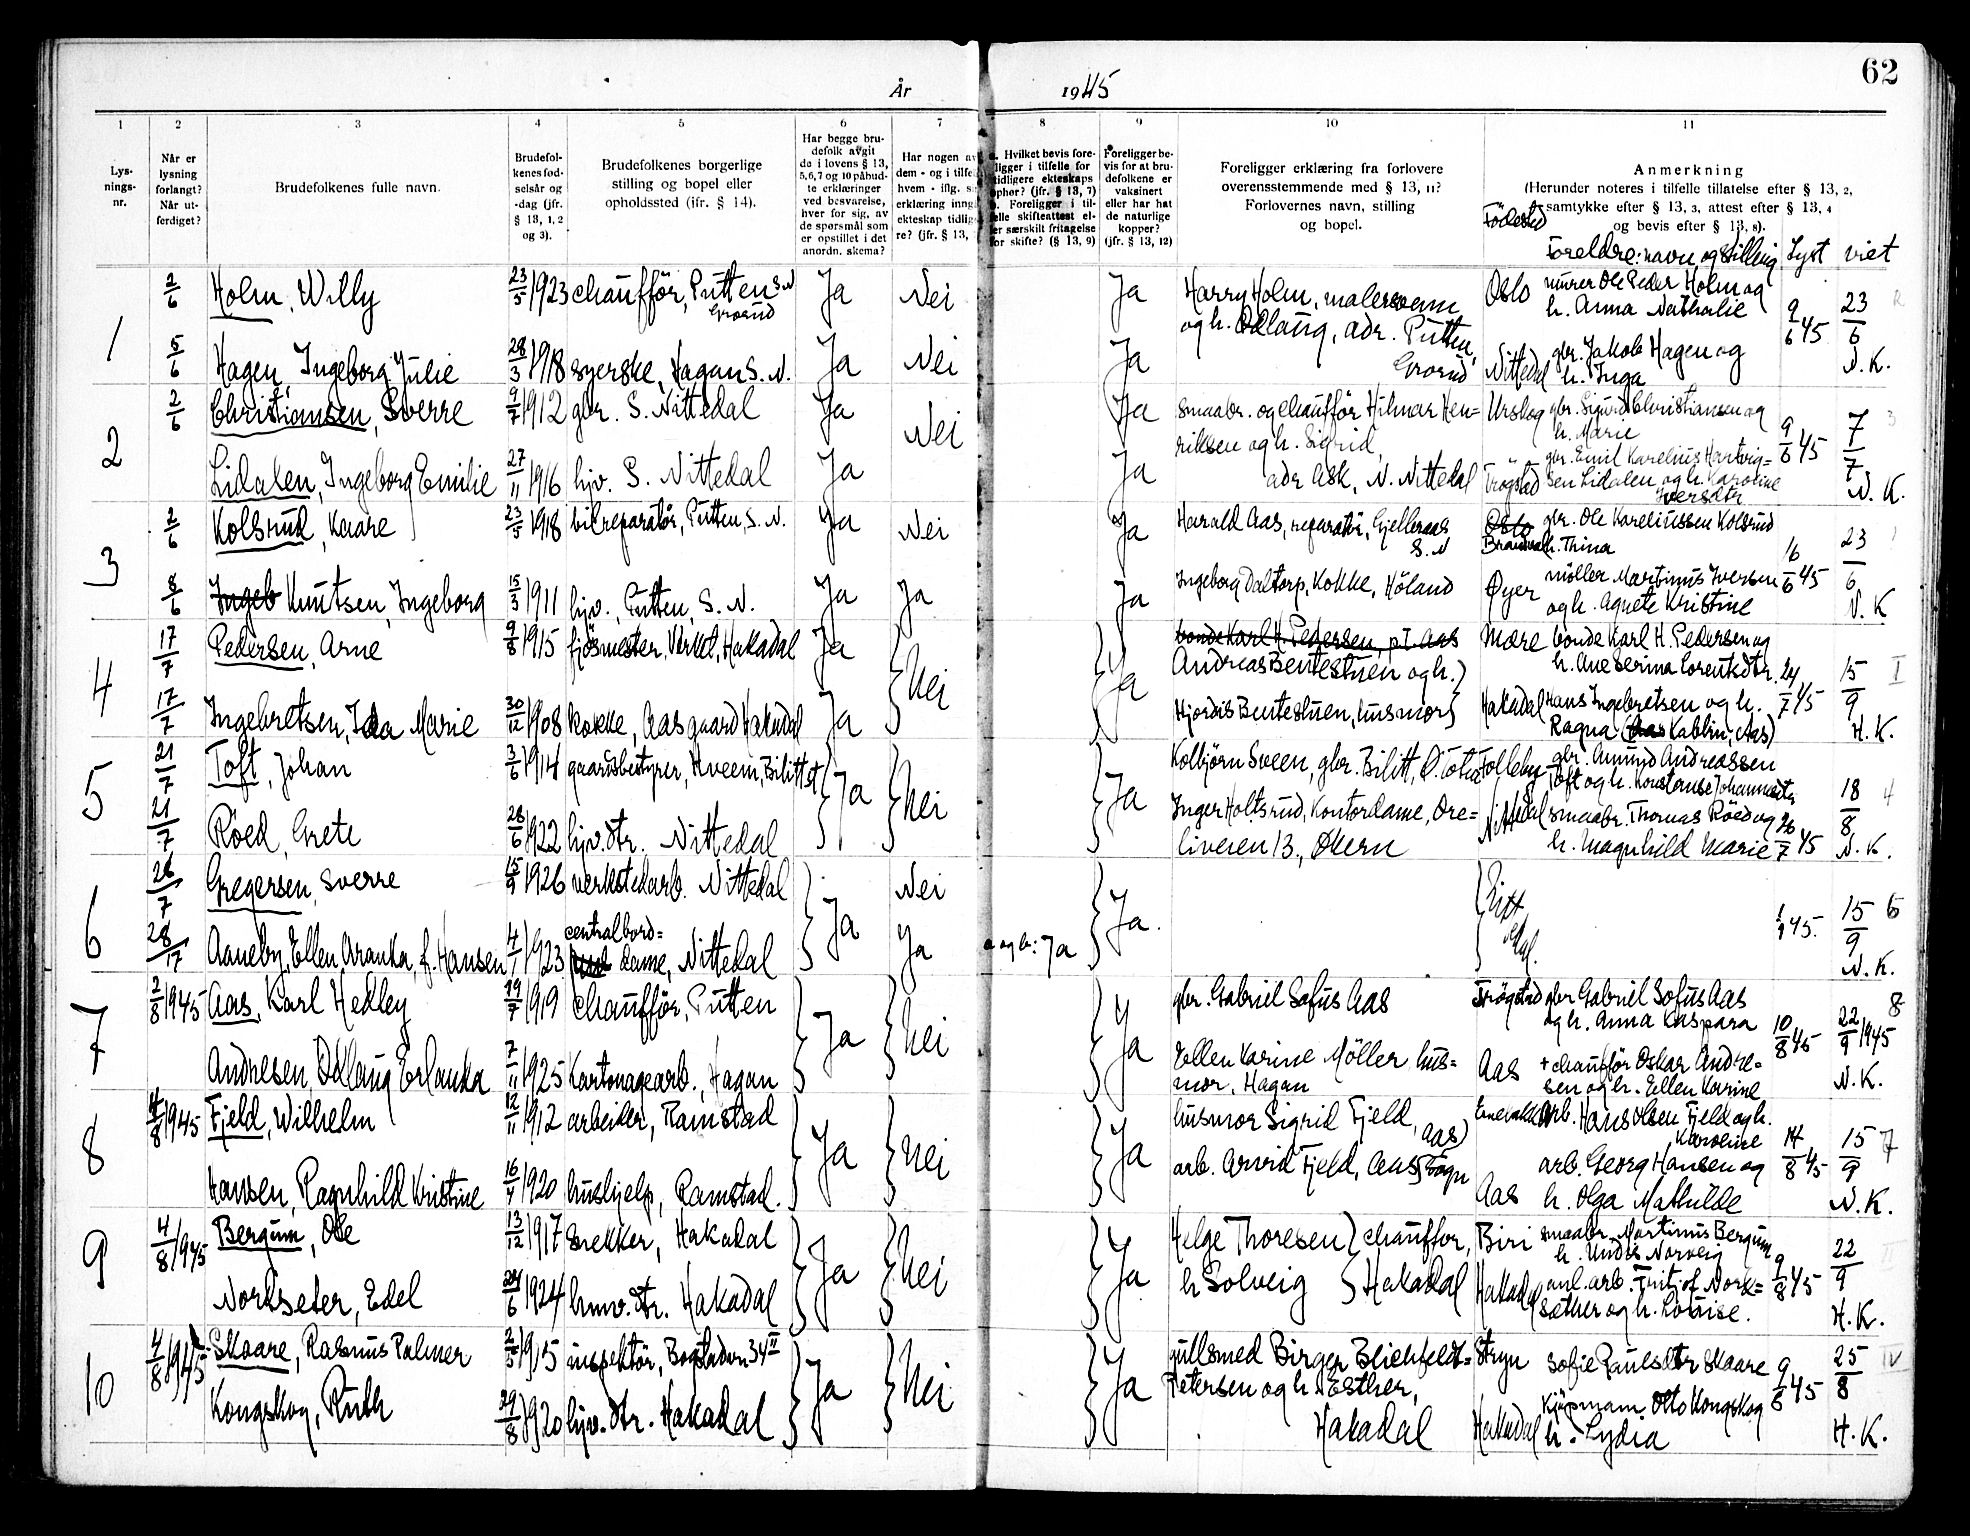 62
År 1945
1 2 3 4 5 6 7 8 9 10 11
Lys-
nings-
nr.
Når er
lysning
forlangt?
Når ut-
ferdiget?
Brudefolkenes fulle navn.
Brudefol-
kenes fød-
selsår og
-dag (jfr.
§ 13, 1, 2
og 3).
Brudefolkenes borgerlige
stilling og bopel eller
opholdssted (ifr. § 14).
Har begge bru-
defolk avgit
de i lovens § 13,
5,6,7 og 10 påbud-
te erklæringer
ved besvarelse,
hver for sig, av
de spørsmål som
er opstillet i det
anordn. skema?
Har nogen av
dem - og i tilfe
hvem - iflg. s.
erklæring inng
ekteskap tidlig
re? (jfr. § 13,
Hvilket bevis fore-
ligger i tilfelle for
tidligere ekteskaps
ophør? (jfr. § 13, 7)
Foreligger i til-
felle skifteattest el-
er særskilt fritagelse
for skifte? (§ 13, 9)
Foreligger be-
vis for at bru-
defolkene er
vaksinert
eller har hat
de naturlige
kopper?
(jfr. § 13, 12)
Foreligger erklæring fra forlovere
overensstemmende med § 13, 11?
Forlovernes navn, stilling
og bopel.
Anmerkning
(Herunder noteres i tilfelle tillatelse efter § 13, 2,
samtykke efter § 13, 3, attest efter § 13, 4
og bevis efter § 13, 8).
Födested
Foreldre: navn og stilling Lyst viet
1 2/6 Holm, Willy 23/5 1923 chaufför, Putten S. N. Grorud Ja Nei Ja Harry Holm, malersvenn Oslo murer Ole Peder Holm og
h. Anna Nathalie 9/6 45 23/6
og h. Odlaug, adr. Putten, Grorud
5/6 Hagen, Ingeborg Julie 28/3 1918 syerske, Hagan S. N. Ja Nei Ja Nittedal gbr. Jakob Hagen og
h. Inga N. K.
2 2/6 Christiansen, Sverre 9/7 1912 gbr. S. Nittedal Ja Nei Ja smaabr. og chaufför Hilmar Hen= Urskog gbr. Sigurd Christiansen og
h. Marie 9/6 45 7/7 3
riksen og h. Sigrid,
Lidalen, Ingeborg Emilie 27/11 1916 hjv. S. Nittedal Ja Ja adr Ask, N. Nittedal Trögstad gbr. Emil Karelius Hartvig=
sen Lidalen og h. Karoline
Iversdtr N. K.
3 2/6 Kolsrud, Kaare 23/5 1918 bilreparatör, Putten, S. N. Ja Nei Ja Harald Aas, reparatör, Gjelleraas S. N Oslo gbr. Ole Kareliussen Kolsrud
h. Thina 16/6 45 23/6
8/6 Ingeb Knutsen, Ingeborg 15/3 1911 hjv., Putten, S. N. Ja Ja Ja Ingeborg Daltorp, Kokke, Höland Öyer möller Martinus Iversen
og h. Agnete Kristine N. K
4 17/7 Pedersen, Arne 9/8 1915 fjösmester, Verket, Hakadal Ja Nei Ja bonde Karl H. Pedersen, pT Aas Mære bonde Karl H. Pedersen og
Andreas Bentestuen og h. h. Ane Serina Lorentsdtr. 24/7 45 15/9 I
17/7 Ingebretsen, Ida Marie 30/12 1908 kokke, Aasgaard Hakadal Ja Hjordis Bentestuen, husmor Hakadal Hans Ingebretsen og h.
Ragna H. K.
5 21/7 Toft, Johan 3/6 1914 gaardsbestyrer, Kveem, Bilitt st Ja Nei Ja Kolbjörn Sveen, gbr. Bilitt, Ö. Toten Follebu gbr. Amund Andreassen
Toft og h. Konstanse Johannesdtr 18/8 4
21/7 Röed, Grete 28/6 1922 hjv. dtr. Nittedal Inger Holtsrud, Kontordame, Ore= Nittedal smaabr. Thomas Röed og 26/7 45
liveien 13., Økern h. Magnhild Marie N. K.
6 26/7 Gregersen, Sverre 15/9 1926 verkstedarb. Nittedal Ja Nei Ja. 45. 15/9 6
28/7 Aaneby, Ellen Aranka, f. Hansen 4/1 1923 centralbord=
dame, Nittedal Ja a og b: Ja N. K.
7 2/8 1945 Aas, Karl Hedley 19/7 1919 chaufför, Putten Ja Nei Ja gbr. Gabriel Sofus Aas Trögstad gbr Gabriel Sofus Aas
og h. Anna Kaspara 10/8 45 22/9 1945 8
Andresen, Odlaug Erlanka 7/11 1925 Kartonagearb., Hagan Ellen Karine Möller hus=
mor, Hagan Aas + chaufför Oskar Andre=
sen og h. Ellen Karine N. K.
8 4/8 1945 Fjeld, Wilhelm 12/11 1912 arbeider, Ramstad Ja Nei Ja husmor Sigrid Fjeld, Aas arb. Hans Olsen Fjeld og h.
Karoline 14/8 45 15/9 7
Hansen, Ragnhild Kristine 16/4 1920 hushjelp, Ramstad. arb. Arvid Fjeld, Aas Aas arb. Georg Hansen og
h. Olga Mathilde N. K.
9 4/8 1945 Bergum, Ole 13/12 1917 snekker, Hakadal Ja Nei Ja Helge Thoresen chauffor, Biri smaabr. Martinus Bergum
h. 9/8 45 22/9 II
Nordseter, Edel 24/6 1924 hmv. dtr. Hakadal h Solveig Hakadal Hakadal anl. arb. Fritjof Nord=
sether og h. Louise. H. K.
10 4/8 1945 Skaare, Rasmus Palmer 2/5 1915 inspektör, Bogstadvn 34 II Ja Nei Ja gullsmed Birger Blichfeldt= Stryn Sofie Paulsdtr Skaare 9/8 45 25/8 IV
Petersen og h. Esther,
Kongskog, Ruth 29/8 1920 hjv. dtr. Hakadal Hakadal Hakadal Kjöpmann Otto Kongskog
h. Lydia H. K.